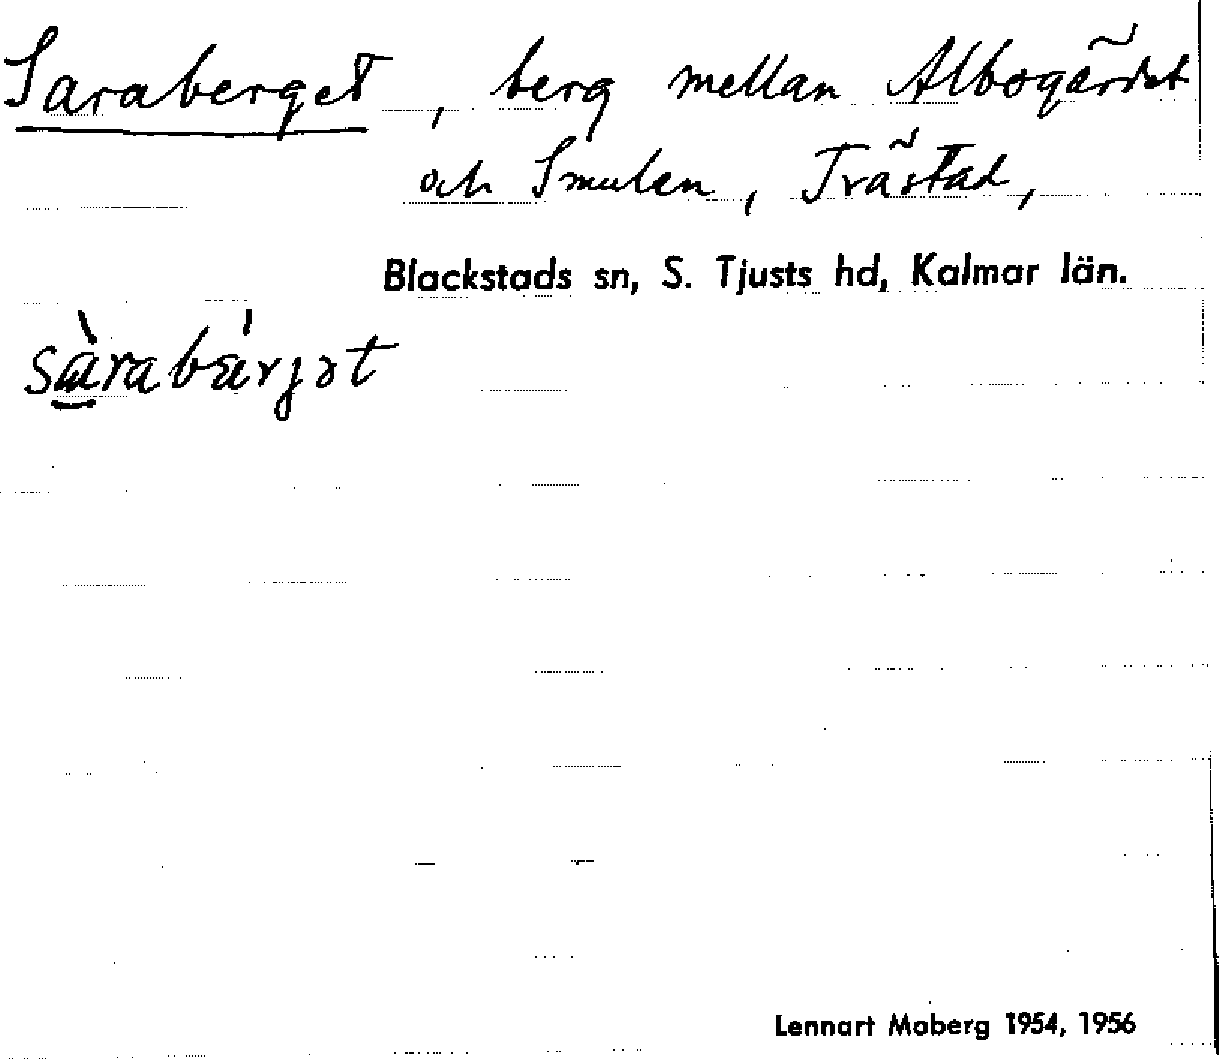 Saraberget, berg mellan Albogärdet
och Smulen, Trästad,
Blackstads sn, S. Tjusts hd, Kalmar län.
Lennart Moberg 1954, 1956